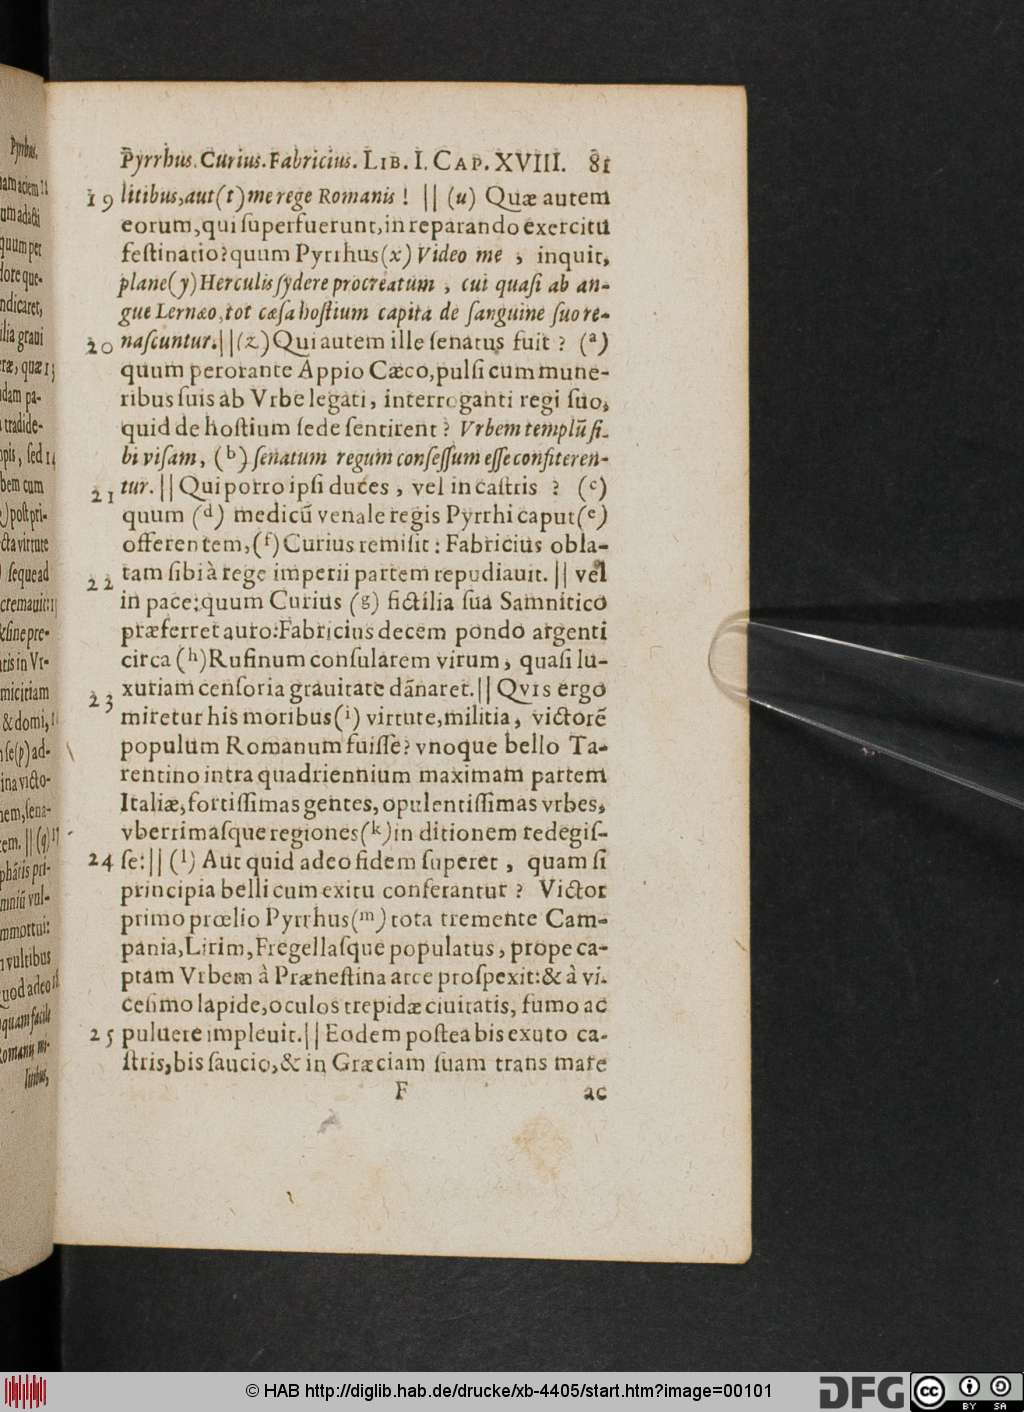 Pyrrhus. Curius. Fabricius. LIB. I. CAP. XVIII. 81
19 litibus, aut (t) me rege Romanis! || (u) Quæ autem
eorum, qui ſuperfuerunt, in reparando exercitu
feſtinatio? quum Pyrrhus (x) Video me, inquit,
plane (y) Herculis ſydere procreatum, cui quaſi ab an-
gue Lernæo, tot cæſa hoſtium capita de ſanguine ſuo re-
20 naſcuntur. || (z) Qui autem ille ſenatus fuit? (a)
quum perorante Appio Cæco, pulſi cum mune-
ribus ſuis ab Vrbe legati, interroganti regi ſuo,
quid de hoſtium ſede ſentirent? Vrbem templũ ſi-
bi viſam, (b) ſenatum regum conſeſſum eſſe confiteren-
21 tur. || Qui porro ipſi duces, vel in caſtris? (c)
quum (d) medicũ venale regis Pyrrhi caput (e)
offerentem, (f) Curius remiſit: Fabricius obla-
22 tam ſibi à rege imperii partem repudiauit. || vel
in pace: quum Curius (g) fictilia ſua Samnitico
præferret auro: Fabricius decem pondo argenti
circa (h) Rufinum conſularem virum, quaſi lu-
xuriam cenſoria grauitate dãnaret. || QVIS ergo
23 miretur his moribus (i) virtute, militia, victorẽ
populum Romanum fuiſſe? vnoque bello Ta-
rentino intra quadriennium maximam partem
Italiæ, fortiſſimas gentes, opulentiſſimas vrbes,
vberrimaſque regiones (k) in ditionem redegiſ-
24 ſe: || (l) Aut quid adeo fidem ſuperet, quam ſi
principia belli cum exitu conferantur? Victor
primo prœlio Pyrrhus (m) tota tremente Cam-
pania, Lirim, Fregellaſque populatus, prope ca-
ptam Vrbem à Præneſtina arce proſpexit: & à vi-
ceſimo lapide, oculos trepidæ ciuitatis, fumo ac
25 puluere impleuit. || Eodem poſtea bis exuto ca-
ſtris, bis ſaucio, & in Græciam ſuam trans mare
F ac
© HAB http://diglib.hab.de/drucke/xb-4405/start.htm?image=00101
DFG
cc BY SA